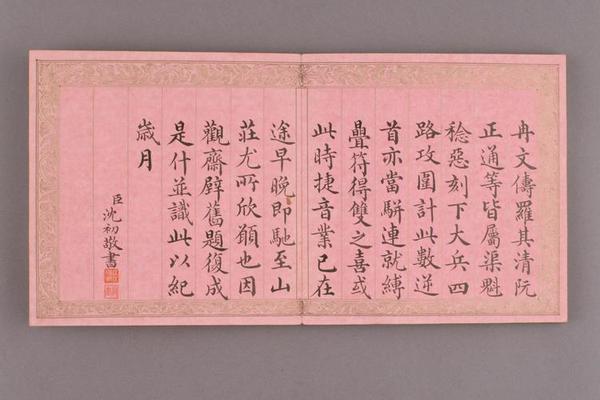 冉文儔羅其清阮
正通等皆屬渠魁
稔惡刻下大兵四
路攻圍計此數逆
首亦當駢連就縛
疊符得雙之喜或
此時捷音業已在
途早晚即馳至山
莊尤所欣願也因
觀齋壁舊題復成
是什並識此以紀
歲月
臣沈初敬書